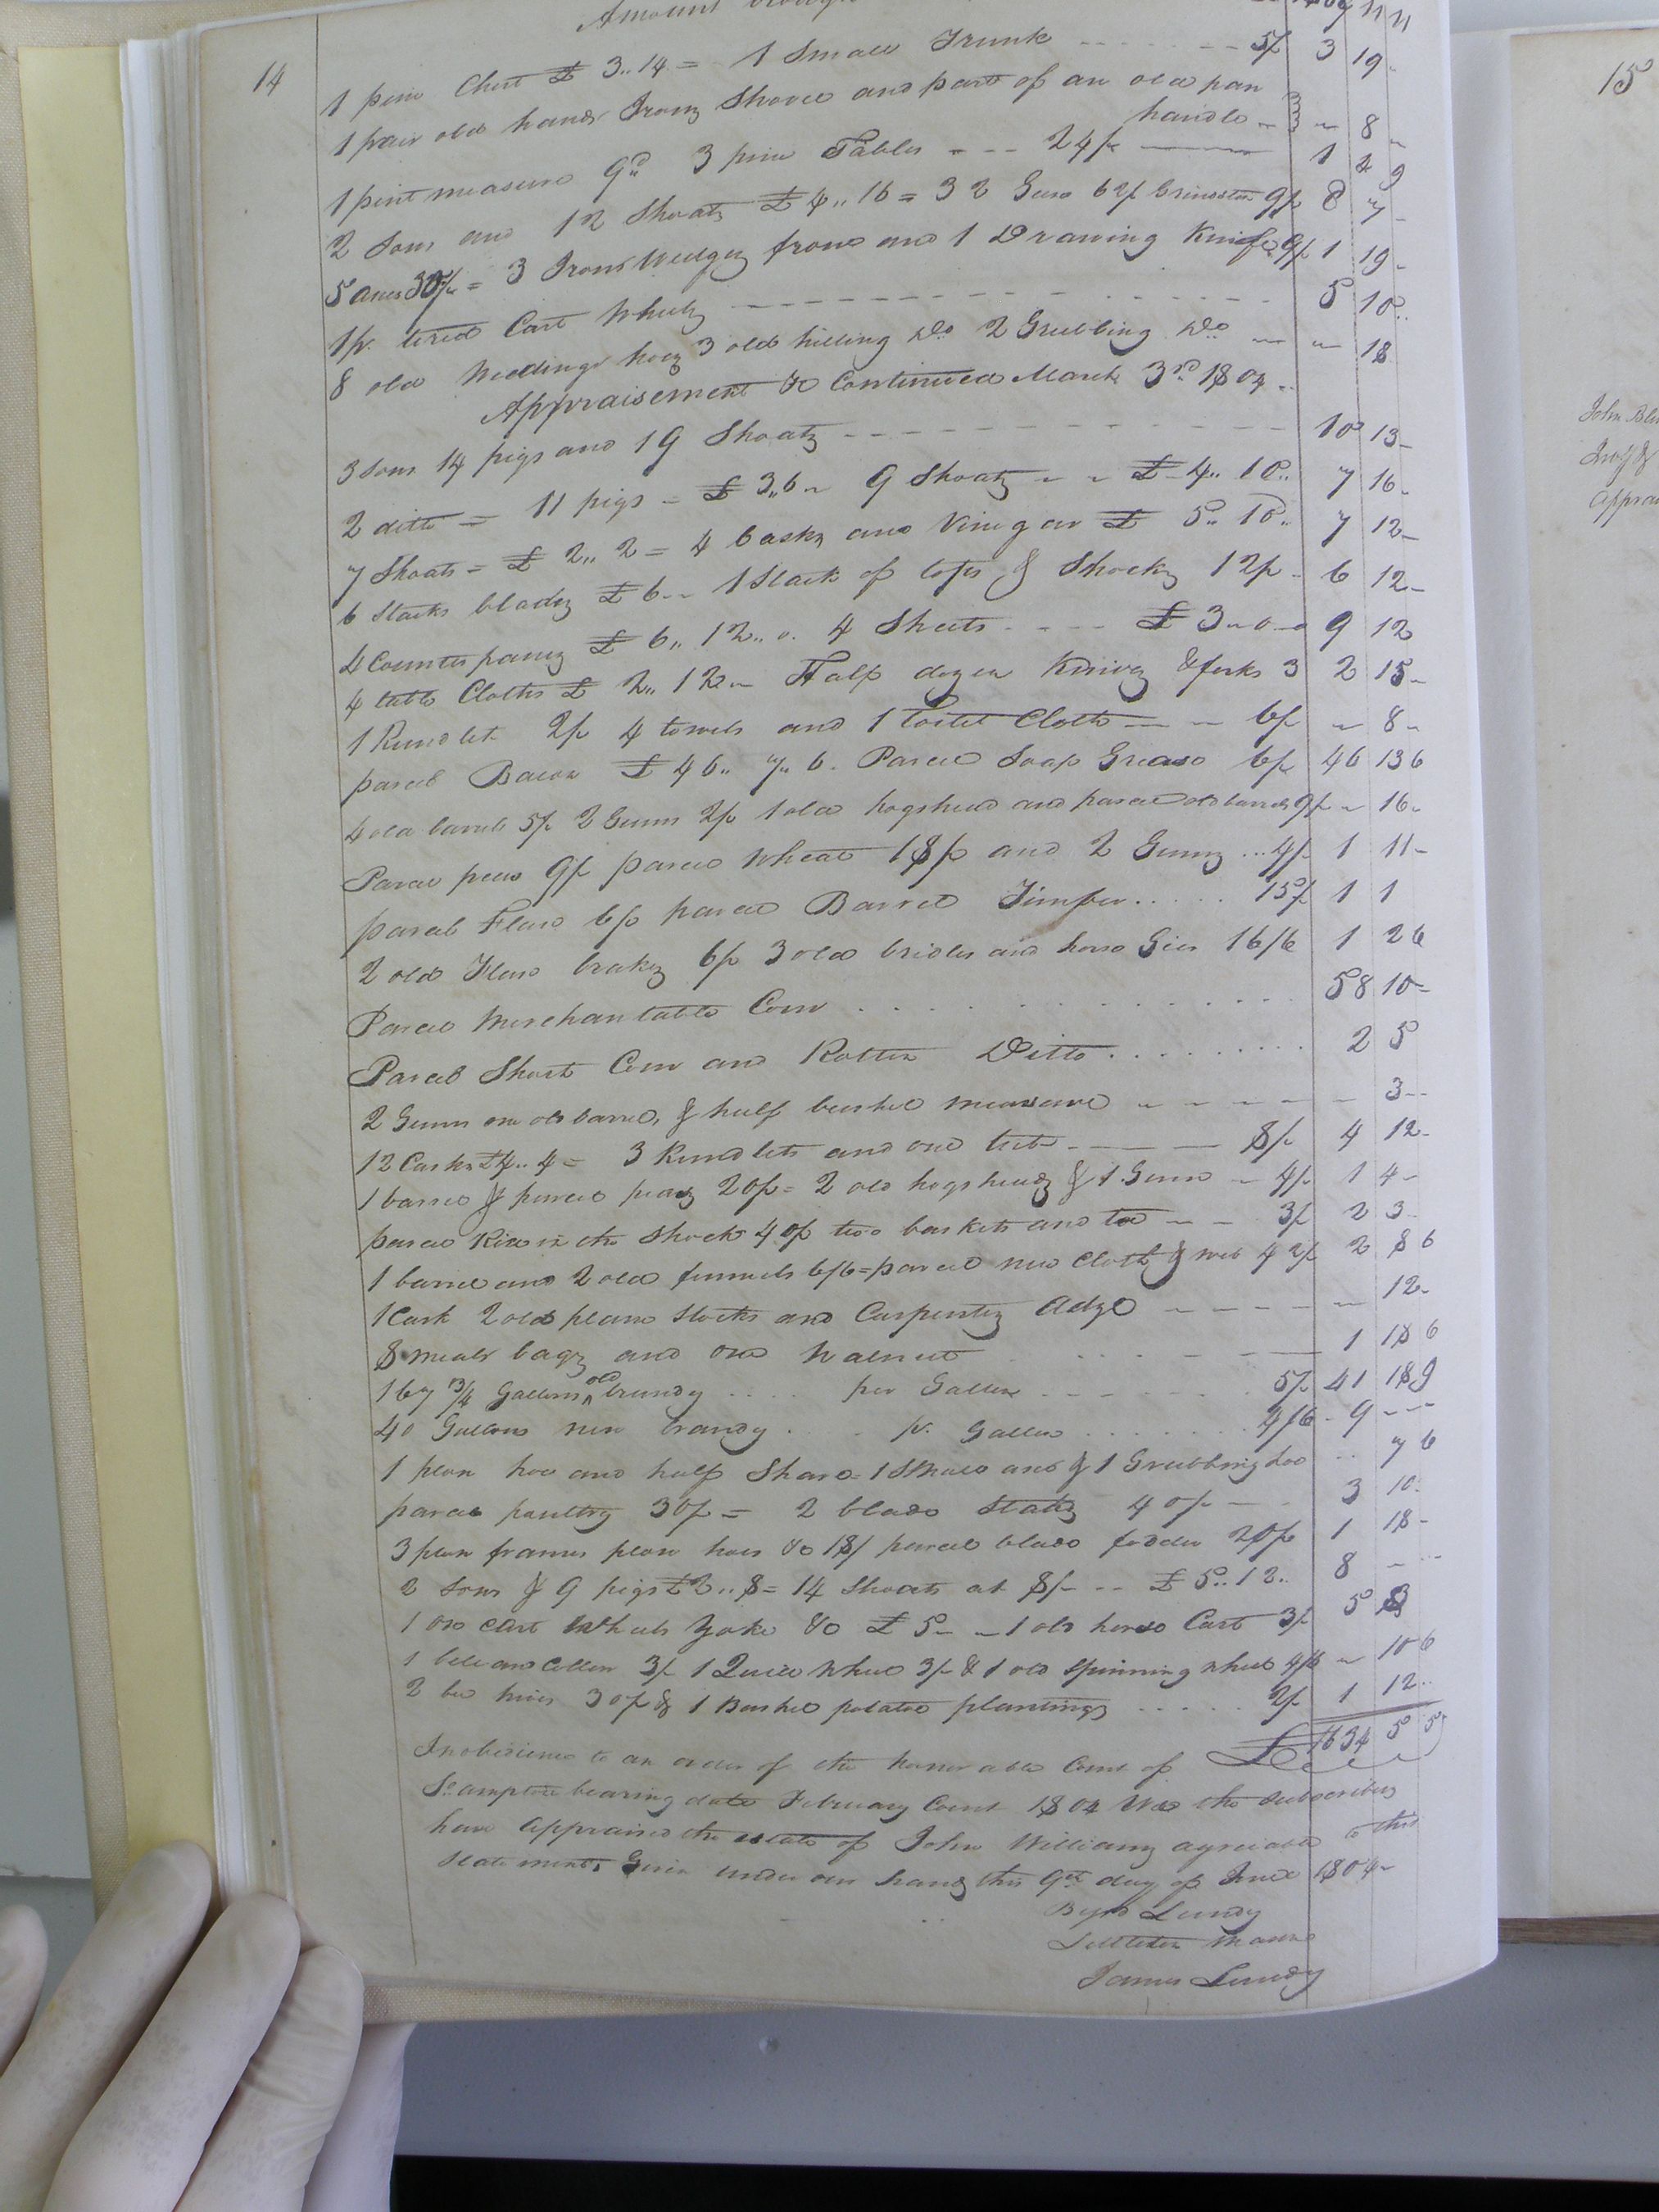 Amount
14
1 pine Chest £ 3..14 = 1 Small Trunk 5/ 3 19
1 pair old hand Irons Shovel and part of an old pan
handle 8
1 pint measure 9d 3 pine Tables 24/ 1 4 9
2 Sows and 12 Shoats £ 4..16 = 32 Geese 62/ Grindstone 9/ 8 7
5 axes 30/ = 3 Irons Wedges frow and 1 Drawing Knife 9/ 1 19
1 pr. tired Cart Wheels 5 10
8 old Weedings hoes 3 old hilling Do 2 Grubbing Do 18
Appraisement &c Continued March 3rd 1804
3 Sows 14 pigs and 19 Shoats 10 13
2 ditto = 11 pigs = £ 3..6 9 Shoats £ 4..10 7 16
7 Shoats = £ 2..2 = 4 Casks and Vinegar £ 5..10 7 12
6 Stacks blades £ 6 1 Stack of tops & Shocks 12/ 6 12
4 Counterpanes £ 6..12..0 4 Sheets £ 3 0 0 9 12
4 table Cloths £ 2..12 Half dozen Knives & forks 3 2 15
1 Rundlet 2/ 4 towels and 1 Toilet Cloth 6/ 8
parcel Bacon £ 46..7..6 Parcel Soap Grease 6/ 46 13 6
4 old barrels 5/ 2 Gums 2/ 1 old hogshead and parcel old barrels 9/ 16
Parcel peas 9/ parcel Wheat 18/ and 2 Gums 4/ 1 11
parcel Flax 6/ parcel Barrel Timber 15/ 1 1
2 old Flax brakes 6/ 3 old bridles and horse Gier 16/6 1 2 6
Parcel Merchantable Corn 58 10
Parcel Short Corn and Rotten Ditto 2 5
2 Gums one old barrel, & half bushel measure 3
12 Casks £4..4 = 3 Rundlets and one tub 8/ 4 12
1 barrel & parcel peas 20/ = 2 old hogsheads & 1 Gum 4/ 1 4
parcel Rice in the Shock 40/ two baskets and 3/ 2 3
1 barrel and 2 old funnels 6/6 = parcel new Cloth & web 42/ 2 8 6
1 Cask 2 old plane Stocks and Carpenters Adze 12
8 meal bags and one Walnut 1 18 6
167 3/4 Gallons old brandy per Gallon 5/ 41 18 9
40 Gallons new brandy pr. Gallon 4/6 9
1 plow hoe and half Share = 1 & 1 Grubbing hoe 7 6
parcel poultry 30/ = 2 blade Stacks 40/ 3 10
3 plow frames plow hoes &c 18/ parcel blade fodder 20/ 1 18
2 Sows & 9 pigs £2..8 = 14 Shoats at 8/ £ 5..12 8
1 ox cart Wheels Yoke &c £ 5 1 old horse Cart 3/ 5 3
1 bell and Collar 3/ 1 Quill Wheel 3/ & 1 old Spinning Wheel 4/6 10 6
2 bee hives 30/ & 1 Bushel potatoe plantings 2/ 1 12
£ 1634 5 5
In obedience to an order of the honorable Court of
So.ampton bearing date February Court 1804 We the Subscribers
have Appraised the estate of John Williams agreeable to this
Statement. Given under our hands this 9th day of June 1804
Byrd Lundy
Littleton Mason
James Lundy
15
John
Apprai